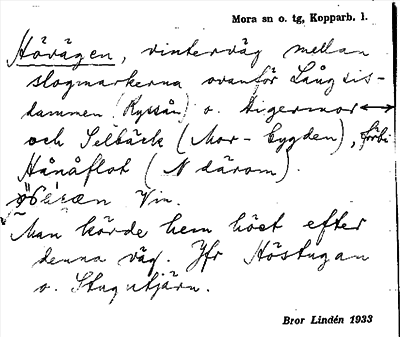 Mora sn o. tg, Kopparb. l.
Hövägen, vinterväg mellan
slogmarkerna ovanför Långsis-
dammen (Ryssån) o. Digermor
och Selbäck (Mor-bygden), förbi
Hånåflot (N därom).
Vin.
Man körde hem höet efter
denna väg. Jfr Höstugan
o. Stugutjärn.
Bror Lindén 1933